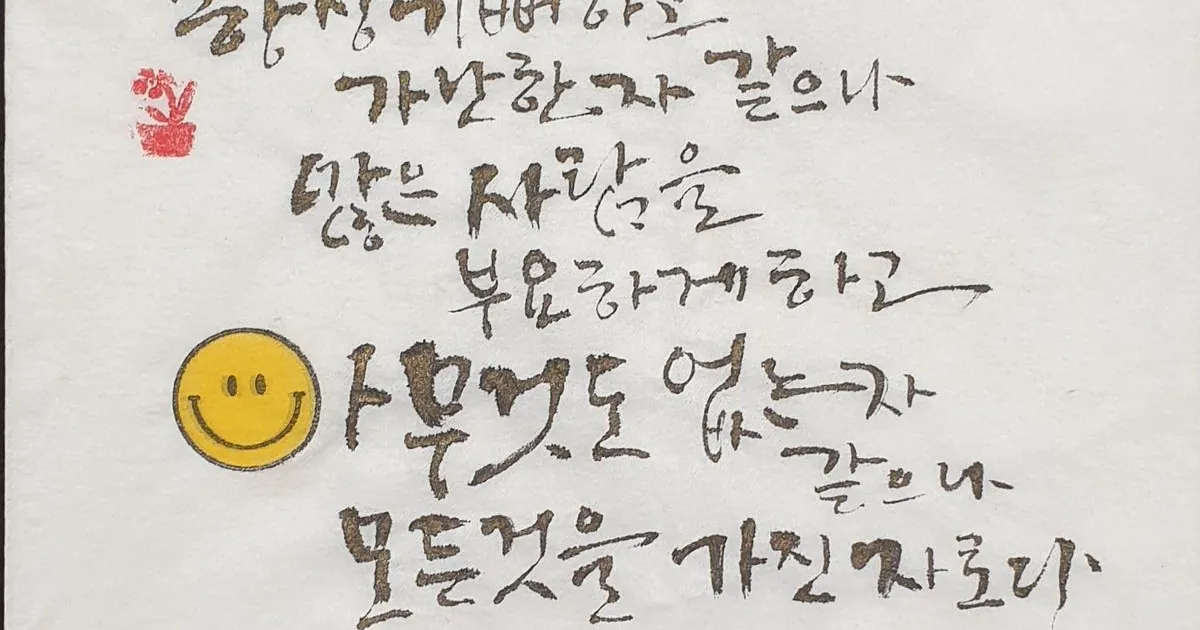 항상 기뻐하고
가난한 자 같으나
많은 사람을
부요하게 하고
아무것도 없는 자
같으나
모든것을 가진 자로다